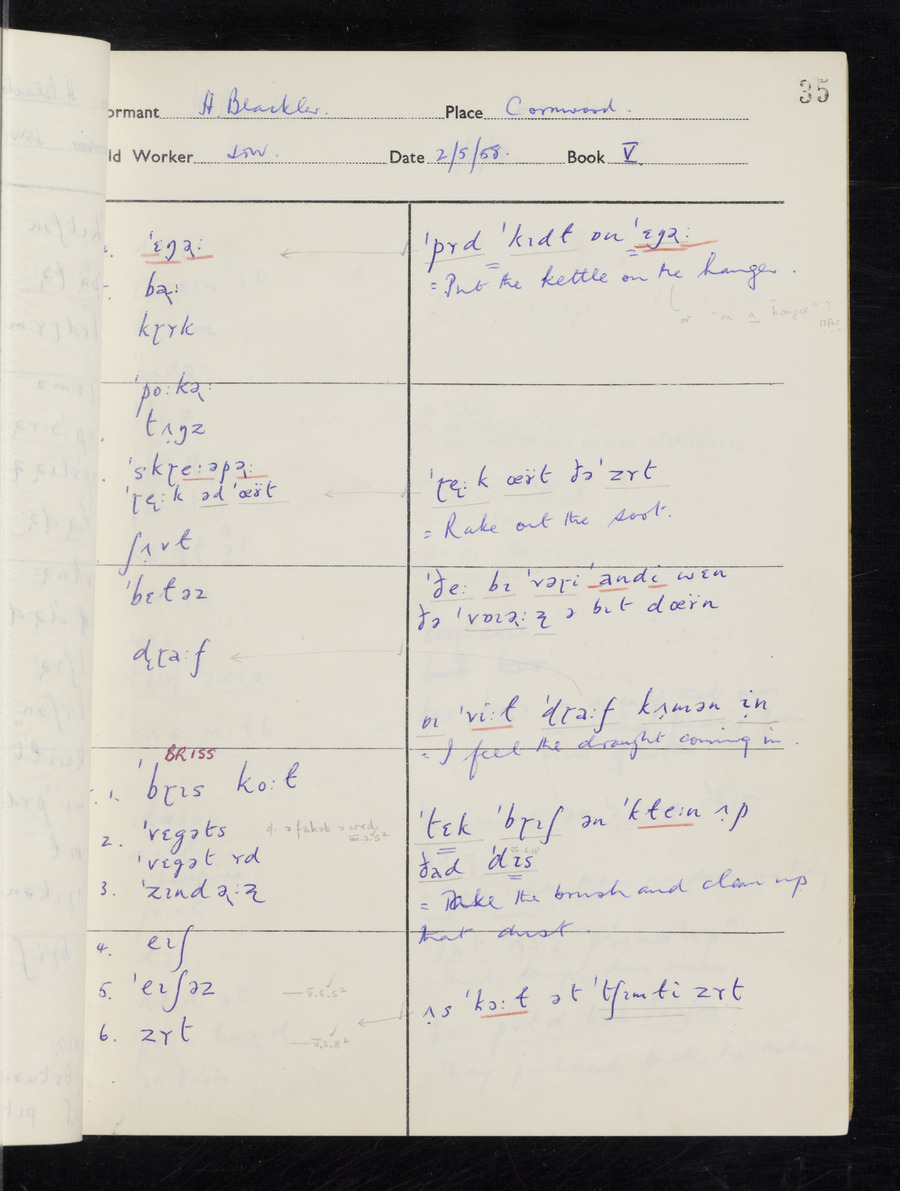 35
ormant H. Blackler. Place Cornwood.
ld Worker Date 2/5/58. Book V
ˈɛɡɚː
bɚː
kɽʏk
ˈpoːkɚ
tʌ̣ɡz
ˈskɽeːəpɚː
ˈɽe̜ːk əd ˈœÿt
ʃʌ̣vt
ˈbɛtəz
dɽaːf
BRISS
1. ˈbɽɪs koːt
2. ˈvɛɡəts
ˈvɛɡət ʏd
3. ˈzɪndɚːz̨
4. eɪʃ
5. ˈeɪʃəz — V.4.5²
6. zʏt
ˈpʏd ˈkɪdt ɒn ˈɛɡɚː
= Put the kettle on the hanger.
or "on a hanger"
ˈɽe̜ːk œÿt ðə ˈzʏt
= Rake out the soot.
ˈðeː bɪ ˈvəɽi ˈandi wɛn
ðə ˈvɒɪɚːz̨ ə bɪt dœÿn
ɒɪ ˈviːt ˈdɽaːf kʌ̣mən ịn
= I feel the draught coming in.
ˈtɛk ˈbɽɪʃ ən ˈkteːn ʌ̣p
ðad ˈdɪs
= Take the brush and clean up
that dust.
ʌ̣s ˈkəːt ət ˈtʃɪmti zʏt